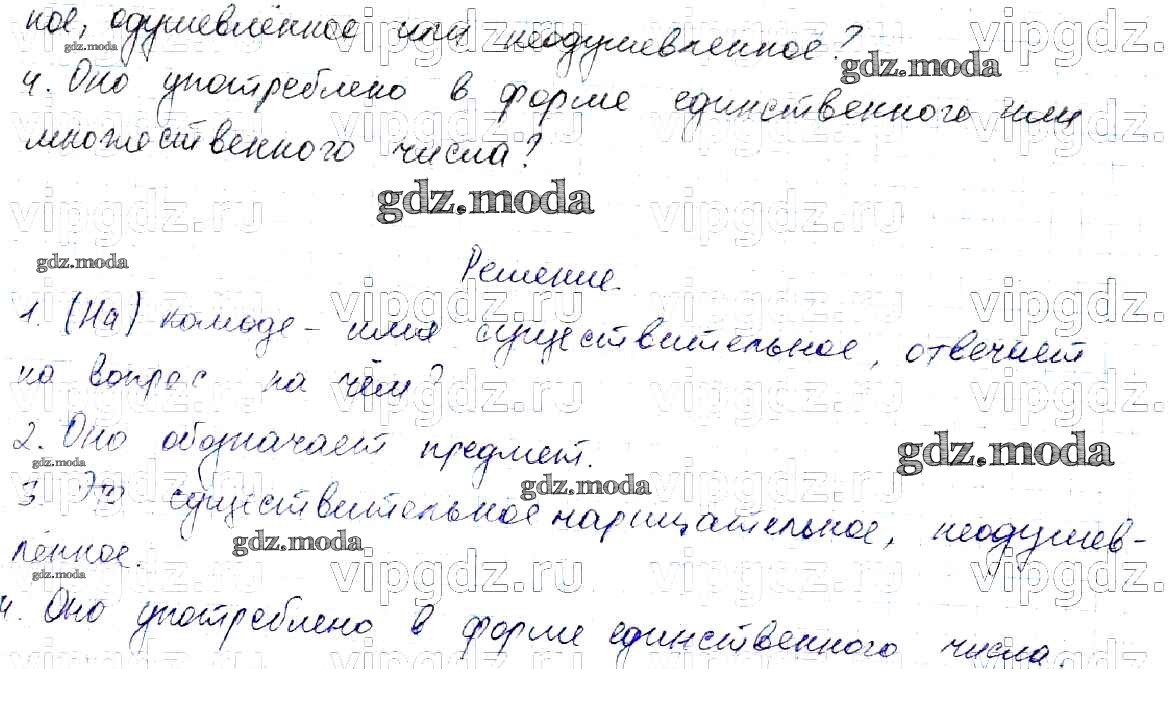 ное, одушевлённое или неодушевленное?
4. Оно употреблено в форме единственного или
множественного числа?
gdz.moda
Решение.
1. (На) комоде – имя существительное, отвечает
на вопрос на чём?
2. Оно обозначает предмет.
3. Это существительное нарицательное, неодушев-
лённое.
4. Оно употреблено в форме единственного числа.
vipgdz.ru